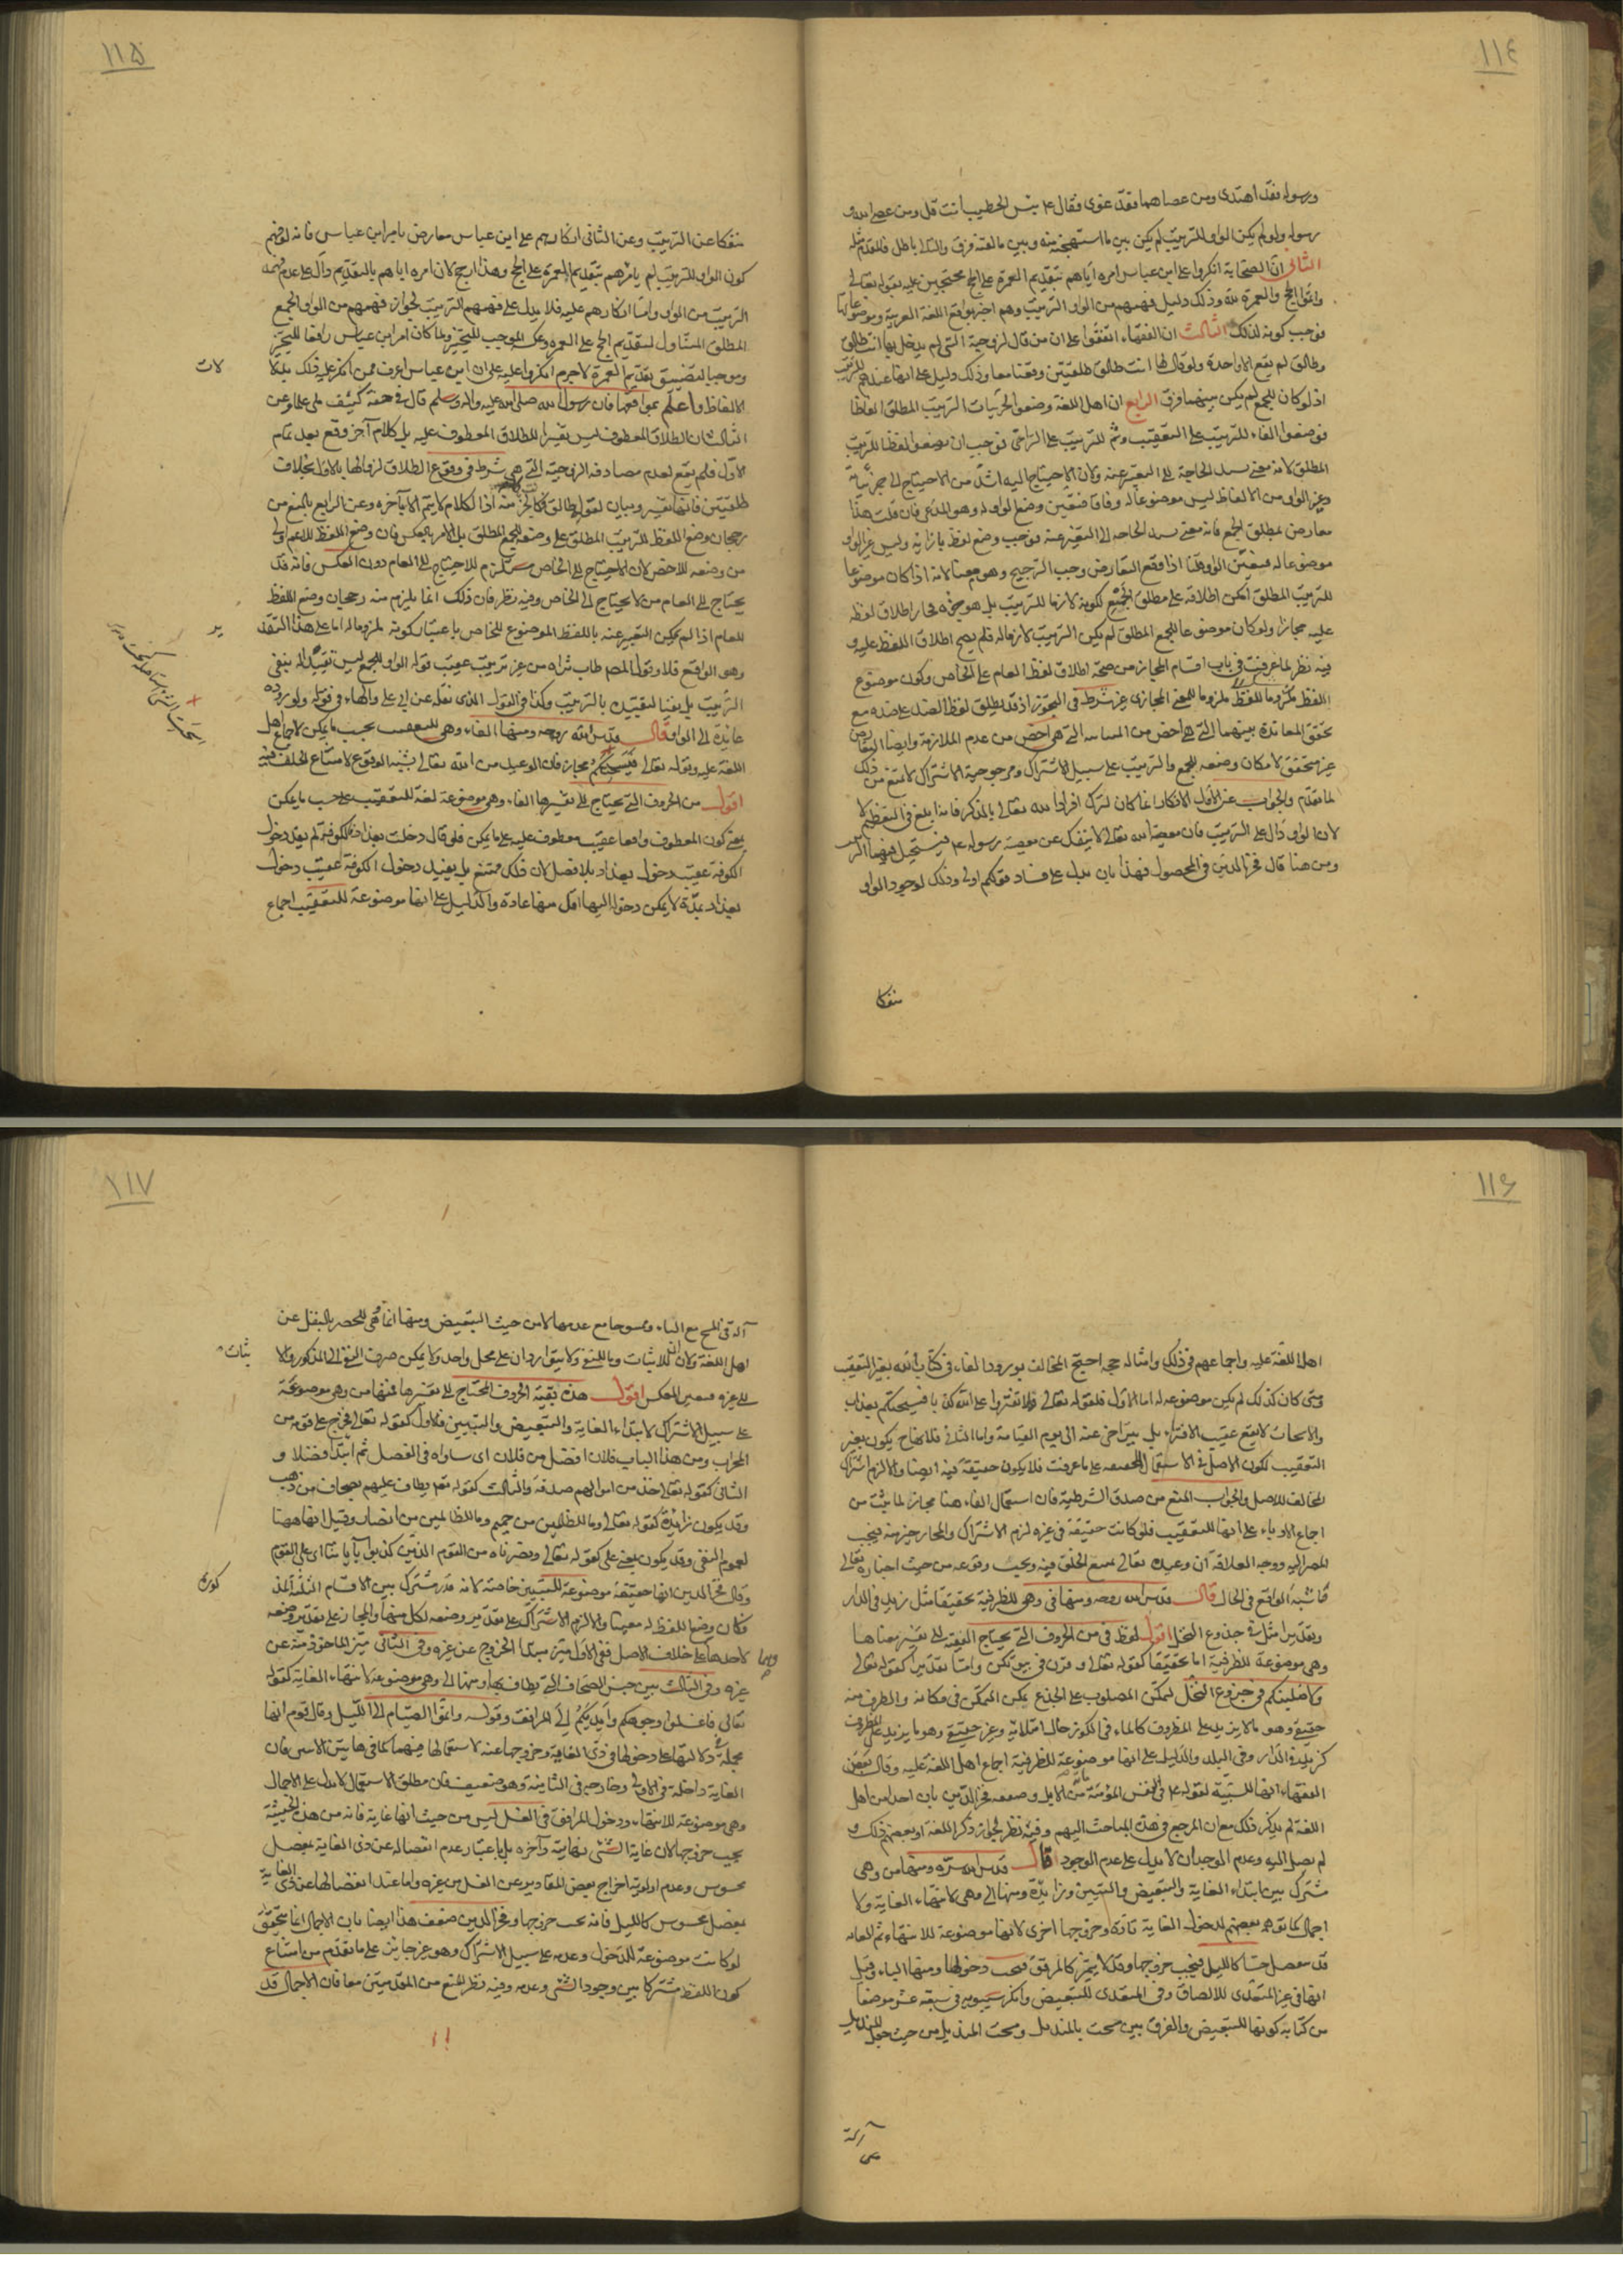 ١١٤
ورسوله فقد اهتدى ومن عصاهما فقد غوى فقال ع بئس الخطيب انت قل ومن عصى الله و
رسوله ولو لم يكن الواو للترتيب لم يكن بين ما استهجنه منه وبين مالقنه فرق والتالى باطل فالمقدم مثله
الثانى ان الصحابة انكروا على ابن عباس امره اياهم بتقديم العمرة على الحج محتجين عليه بقوله تعالى
واتموا الحج والعمرة لله وذلك دليل فهمهم من الواو الترتيب وهم اخبر بواقع اللغة العربية وموضوعاتها
فوجب كونه لذلك الثالث ان الفقهاء اتفقوا على ان من قال لزوجته التى لم يدخل بها انت طالق
وطالق لم يقع الا واحدة ولو قال لها انت طالق طلقتين وقعتا معا وذلك دليل على انها عندهم للترتيب
اذ لو كان للجمع لم يكن بينهما فرق الرابع ان اهل اللغة وضعوا لجزئيات الترتيب المطلق الفاظا
فوضعوا الفاء للترتيب على التعقيب وثم للترتيب على التراخى فوجب ان يضعوا لفظا للترتيب
المطلق لانه معنى يشتد الحاجة الى التعبير عنه ولان الاحتياج اليه اشد من الاحتياج الى جزئياته
وغير الواو من الالفاظ ليس موضوعا له وفاقا فتعين وضع الواو له وهو المدعى فان قلت هذا
معارض بمطلق الجمع فانه معنى يشتد الحاجه الى التعبير عنه فوجب وضع لفظ بازائه وليس غير الواو
موضوعا له فتعين الواو قلنا اذا وقع التعارض وجب الترجيح وهو معنا لانه اذا كان موضوعا
للترتيب المطلق امكن اطلاقه على مطلق الجمع لكونه لازما للترتيب بل هو جزؤه فجاز اطلاق لفظه
عليه مجازا ولو كان موضوعا للجمع المطلق لم يكن الترتيب لازما له فلم يصح اطلاق اللفظ عليه و
فيه نظر لما عرفت فى باب اقسام المجاز من صحة اطلاق لفظ العام على الخاص وكون موضوع
اللفظ ملزوما للفظ ملزوما للمعنى المجازى غير شرط فى التجوز اذ قد يطلق لفظ الضد على ضده مع
تحقق المعاندة بينهما التى هى اخص من المباينة التى هى اخص من عدم الملازمة وايضا التعارض
غير متحقق لامكان وضعه للجمع والترتيب على سبيل الاشتراك ومرجوحية الاشتراك لا تمنع من ذلك
لما تقدم والجواب عن الاول الانكار انما كان لترك افراد الله تعالى بالذكر فانه ابلغ فى التعظيم لا
لان الواو دال على الترتيب فان معصية الله تعالى لا ينفك عن معصية رسوله ع فيستحيل فيهما الترتيب
ومن هنا قال فخر الدين فى المحصول فهذا بان يدل على فساد قولكم اولى وذلك لوجود الواو
منفكا
١١٥
منفكا عن الترتيب وعن الثانى انكارهم على ابن عباس معارض بامر ابن عباس فانه لو فهم
كون الواو للترتيب لم يامرهم بتقديم العمرة على الحج وهذا ارجح لان امره اياهم بالتقديم دال على عدم فهمه
الترتيب من الواو واما انكارهم عليه فلا يدل على فهمهم الترتيب لجواز فهمهم من الواو الجمع
المطلق المتناول لتقديم الحج على العمرة وعكسه الموجب للتخيير ولما كان امر ابن عباس رافعا للتخيير
وموجبا لتضييق تقديم العمرة لاجرم انكروا عليه على ان ابن عباس اعرف ممن انكر عليه ذلك بدلالات
الالفاظ واعلم بمواقعها فان رسول الله صلى الله عليه واله وسلم قال فى حقه كنيف ملى علما وعن
الثالث ان الطلاق المعطوف ليس تفسيرا للطلاق المعطوف عليه بل كلام آخر وقع بعد تمام
الاول فلم يقع لعدم مصادفه الزوجية التى هى شرط فى وقوع الطلاق لزوالها بالاول بخلاف
طلقتين فانها تفسير وبيان لقوله طالق فكالجزء منه اذ الكلام لا يتم الا بآخره وعن الرابع بالمنع من
رجحان وضع اللفظ للترتيب المطلق على وضعه للجمع المطلق بل الامر بالعكس فان وضع اللفظ للاعم اولى
من وضعه للاخص لان الاحتياج الى الخاص مستلزم للاحتياج الى العام دون العكس فانه قد
يحتاج الى العام من لا يحتاج الى الخاص وفيه نظر فان ذلك انما يلزم منه رجحان وضع اللفظ
للعام اذا لم يمكن التعبير عنه باللفظ الموضوع للخاص باعتبار كونه ملزوما له اما على هذا التقدير
وهو الواقع فلا وقول المصم طاب ثراه من غير ترتيب عقيب قوله الواو للجمع ليس تقييدا له بنفى
الترتيب بل نفيا لتقييده بالترتيب وكذا فى القول الذى نقل عن ابى على والهاء فى قوله ولوروده
عائدة الى الواو قال قدس الله روحه ومنها الفاء وهى للتعقيب بحسب ما يمكن لاجماع اهل
اللغة عليه وقوله تعالى فيسحتكم مجاز فان الوعيد من الله تعالى يشبه الوقوع لامتناع الخلف فيه
اقول من الحروف التى يحتاج الى تفسيرها الفاء وهى موضوعة لغة للتعقيب على حسب ما يمكن
بمعنى كون المعطوف واقعا عقيب معطوف عليه على ما يمكن فلو قال دخلت بغداد فالكوفة لم يفد دخول
الكوفة عقيب دخول بغداد بلا فصل لان ذلك ممتنع بل يفيد دخول الكوفة عقيب دخول
بغداد بمدة لا يمكن دخوله اليها اقل منها عادة والدليل على انها موضوعة للتعقيب اجماع
١١٦
اهل اللغة عليه واجماعهم فى ذلك وامثاله حجه احتج المخالف بورود الفاء فى كتاب الله بغير التعقيب
ومتى كان كذلك لم يكن موضوعه له اما الاول فلقوله تعالى ولا تفتروا على الله كذبا فيسحتكم بعذاب
والاسحات لا يقع عقيب الافتراء بل يتراخى عنه الى يوم القيامة واما الثانى فلانها ح يكون بغير
التعقيب لكون الاصل فى الاستعمال الحقيقه على ما عرفت فلا يكون حقيقة فيه ايضا والا لزم اشتراك
المخالف للاصل والجواب المنع من صدق الشرطية فان استعمال الفاء هنا مجاز لما ثبت من
اجماع الادباء على انها للتعقيب فلو كانت حقيقة فى غيره لزم الاشتراك والمجاز خير منه فيجب
المصير اليه ووجه العلاقة ان وعيده تعالى يمتنع الخلق فيه ويجب وقوعه من حيث اخباره تعالى
فاشبه الواقع فى الحال قال قدس الله روحه ومنها فى وهى للظرفية تحقيقا مثل زيد فى الدار
وتقديرا مثل فى جذوع النخل اقول لفظ فى من الحروف التى يحتاج الفقيه الى تفسير معناها
وهى موضوعة للظرفية اما تحقيقا كقوله تعالى وقرن فى بيوتكن واما تقديرا كقوله تعالى
ولاصلبنكم فى جذوع النخل لتمكن المصلوب على الجذع تمكن المتمكن فى مكانه والظرف منه
حقيقى وهو ما لا يزيد على المظروف كالماء فى الكوز حال امتلائه وغير حقيقى وهو ما يزيد على المظروف
كزيد فى الدار وفى البلد والدليل على انها موضوعة للظرفية اجماع اهل اللغة عليه وقال بعض
الفقهاء انها للسببية لقوله ع فى النفس المؤمنة مائة من الابل وضعفه فخر الدين بان احدا من اهل
اللغة لم يذكر ذلك مع ان المرجع فى هذه المباحث اليهم وفيه نظر لجواز ذكر اللغة او بعضهم ذلك و
لم يصل اليه وعدم الوجدان لا يدل على عدم الوجود قال قدس الله سره ومنها من وهى
مشترك بين ابتداء الغاية والتبعيض والتبيين وزائدة ومنها الى وهى لانتهاء الغاية ولا
اجمال كما توهم بعضهم لدخول الغاية تارة وخروجها اخرى لانها موضوعة للانتهاء ثم الغايه
قد تنفصل حسا كالليل فيجب خروجها وقد لا يتميز كالمرفق فيجب دخولها ومنها الباء وقيل
انها فى غير المتعدى للالصاق وفى المتعدى للتبعيض وانكر سيبويه فى سبعة عشر موضعا
من كتابه كونها للتبعيض والفرق بين مسحت بالمنديل ومسحت المنديل من حيث جعل المنديل
آلة
١١٧
آلة فى المسح مع الباء وممسوحا مع عدمها لا من حيث التبعيض ومنها انما وهى للحصر بالنقل عن
اهل اللغة ولان ان للاثبات وما للنفى ولا يتواردان على محل واحد ولا يمكن صرف النفى الى المذكور والاثبات
الى غيره فتعين العكس اقول هذه بقية الحروف المحتاج الى تفسيرها فمنها من وهى موضوعة
على سبيل الاشتراك لابتداء الغاية والتبعيض والتبيين فالاول كقوله تعالى فخرج على قومه من
المحراب ومن هذا الباب فلان افضل من فلان اى ساواه فى الفضل ثم ابتدا فضلا و
الثانى كقوله تعالى خذ من اموالهم صدقة والثالث كقوله تعم يطاف عليهم بصحاف من ذهب
وقد يكون زائدة كقوله تعالى وما للظالمين من حميم وما للظالمين من انصار وقيل انها ههنا
لعموم النفى وقد يكون بمعنى على كقوله تعالى ونصرناه من القوم الذين كذبوا بآياتنا اى على القوم
وقال فخر الدين انها حقيقة موضوعة للتبيين خاصة لانه قدر مشترك بين الاقسام الثلثة المذكورة
فكان وضع اللفظ له معينا والا لزم الاشتراك على تقدير وضعه لكل منها والمجاز على تقدير وضعه
لاحدها وهما على خلاف الاصل ففى الاول ميز مبدأ الخروج عن غيره وفى الثانى ميز الماخوذ منه عن
غيره وفى الثالث بين جنس الصحاف التى يطاف بها ومنها الى وهى موضوعة لانتهاء الغاية كقوله
تعالى فاغسلوا وجوهكم وايديكم الى المرافق وقوله واتموا الصيام الى الليل وقال قوم انها
مجملة فى دلالتها على دخولها فى ذى الغاية وخروجها عنه لاستعمالها فيهما كما فى هاتين الآيتين فان
الغاية داخلة فى الاولى وخارجه فى الثانية وهو ضعيف فان مطلق الاستعمال لا يدل على الاجمال
وهى موضوعة للانتهاء ودخول المرافق فى الغسل ليس من حيث انها غاية فانه من هذه الحيثية
يجب خروجها لان غاية الشئ نهايته وآخره بل باعتبار عدم انفصاله عن ذى الغاية بمفصل
محسوس وعدم اولوية اخراج بعض المقادير عن الغسل من غيره واما عند انفصالها عن ذى الغاية
بمفصل محسوس كالليل فانه يجب خروجها وفخر الدين ضعف هذا ايضا بان الاجمال انما يتحقق
لو كانت موضوعة للدخول وعدمه على سبيل الاشتراك وهو غير جائز على ما تقدم من امتناع
كون اللفظ مشتركا بين وجود الشئ وعدمه وفيه نظر للمنع من المقدمتين معا فان الاجمال قد